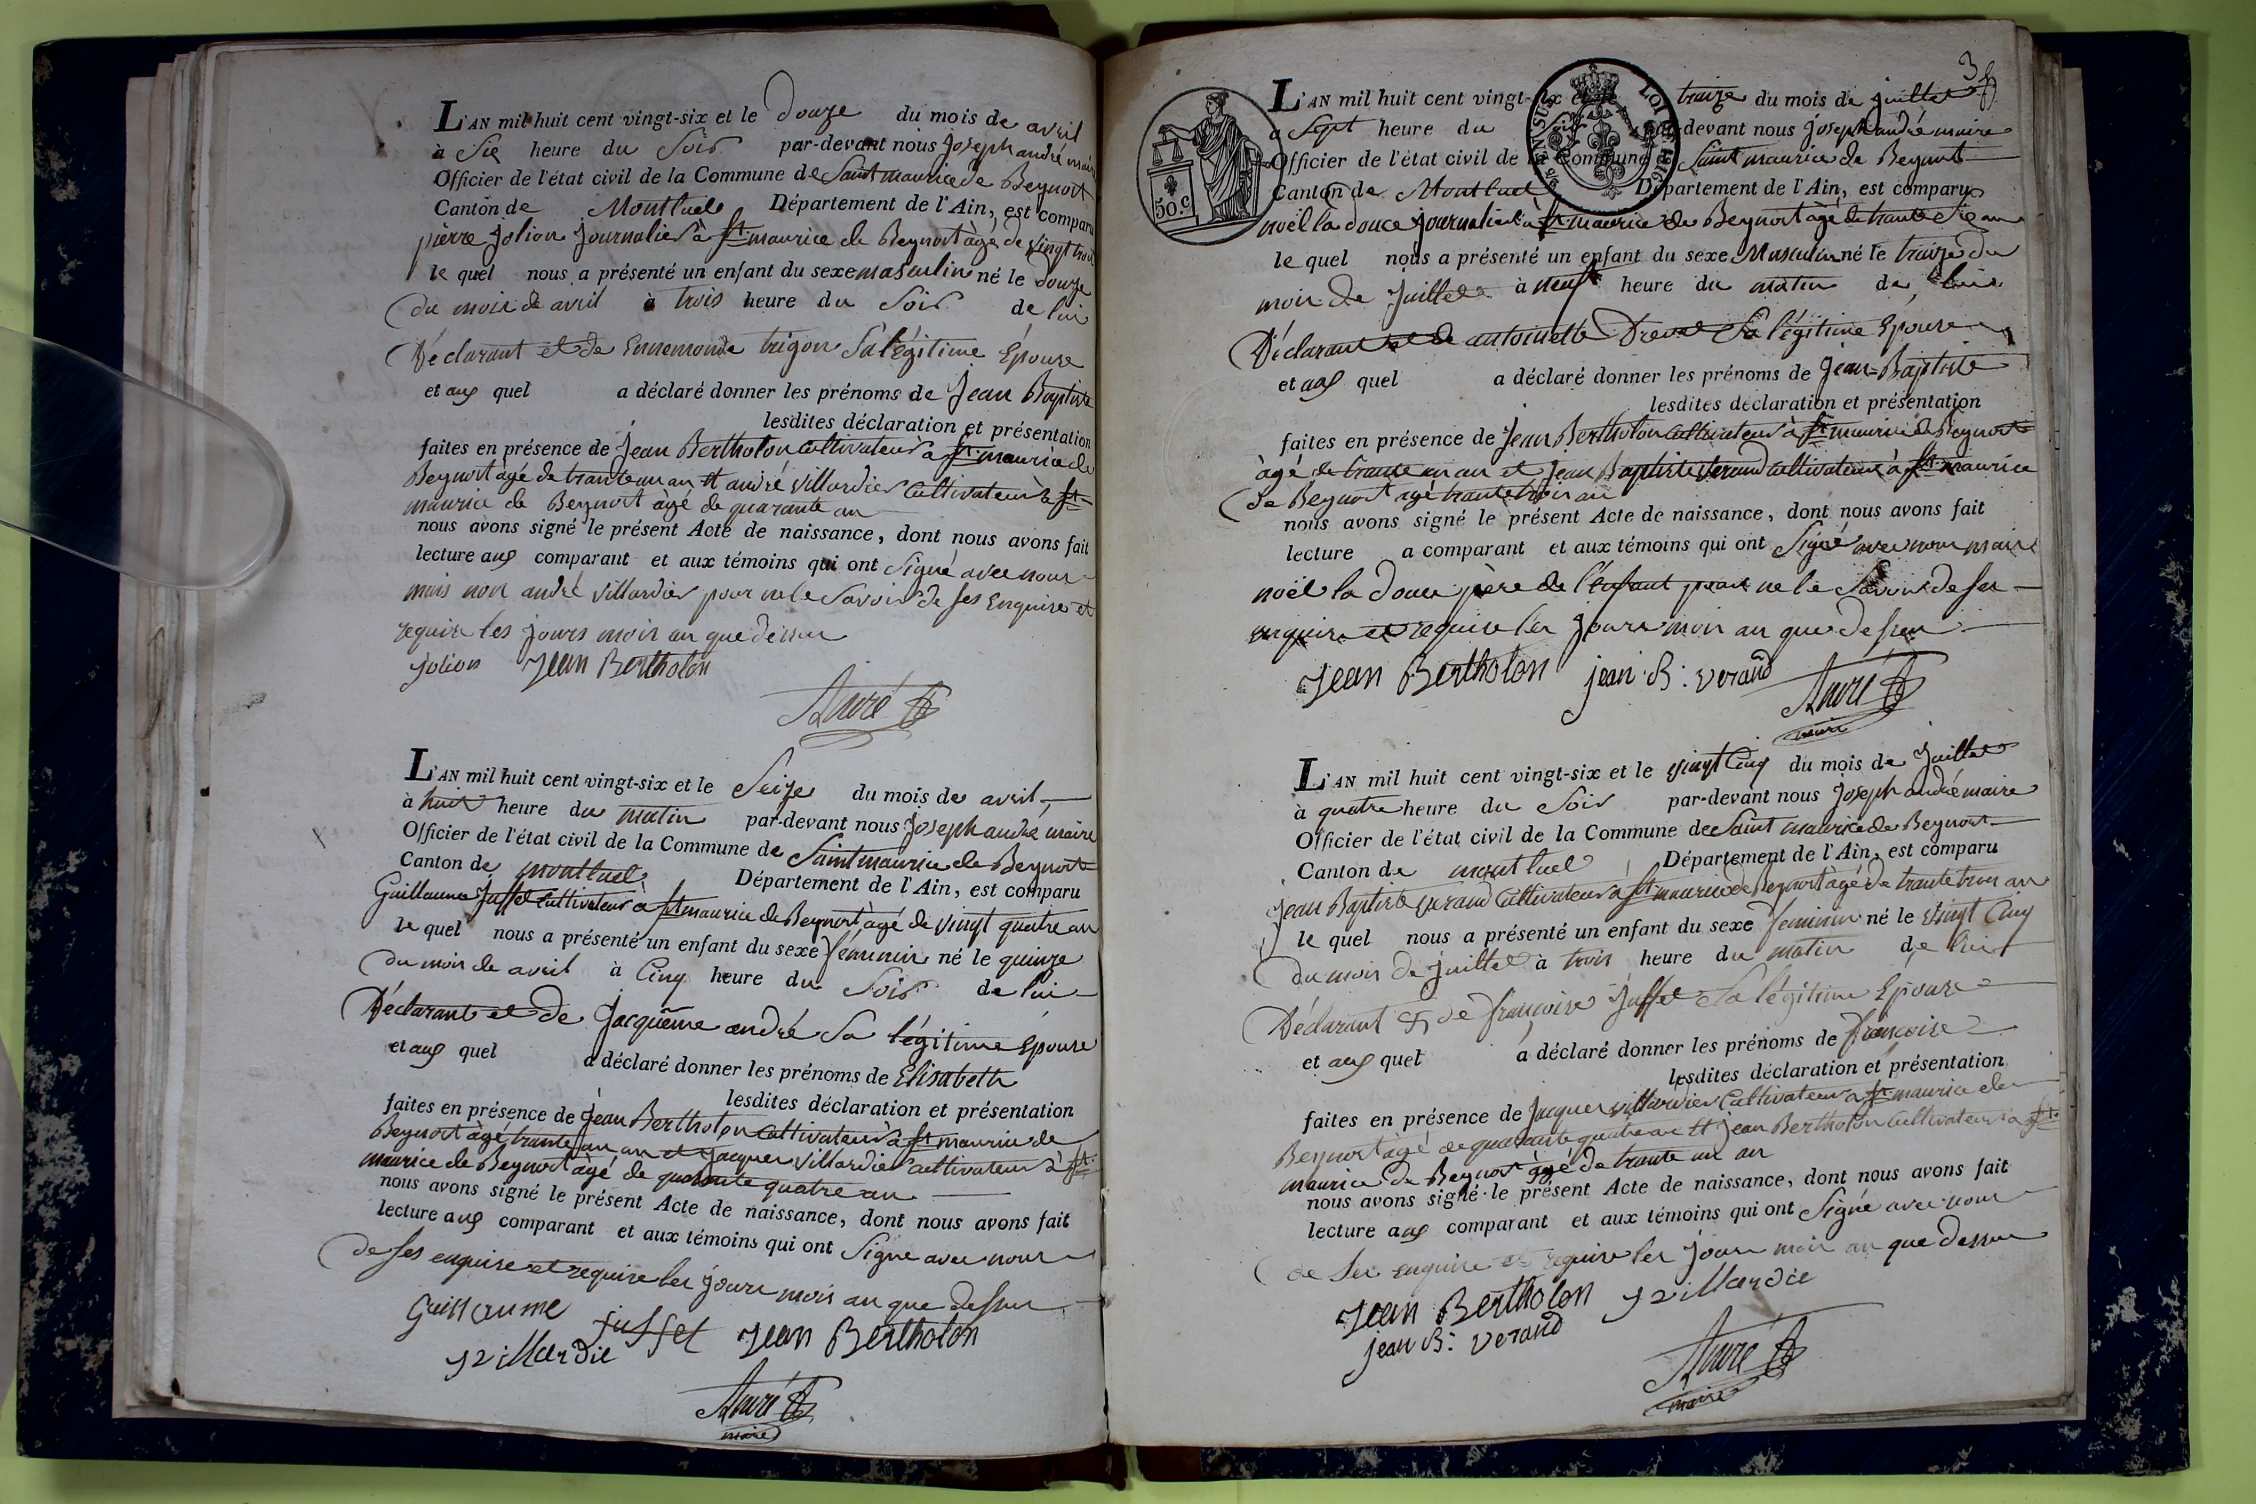 L'AN mil huit cent vingt-six et le douze du mois de avril
à Six heure du Soir par-devant nous joseph andré maire
Officier de l'état civil de la Commune de Saint maurice de Beynost
Canton de Montluel Département de l'Ain, est comparu
pierre Jolion Journalier à St maurice de Beynost àgé de vingt trois
le quel nous a présenté un enfant du sexe masculin né le douze
du mois de avril à trois heure du Soir de lui
Déclarant et de Ennemonde trigon Sa légitime Épouse
et auq quel a déclaré donner les prénoms de Jean Baptiste
lesdites déclaration et présentation
faites en présence de Jean Bertholon Cultivateur à St maurice de
Beynost àgé de trante un an et andré villardier Cultivateur à St
maurice de Beynost àgé de quarante an
nous avons signé le présent Acte de naissance, dont nous avons fait
lecture auq comparant et aux témoins qui ont Signé avec nous
mais non andré villardier pour ne le Savoir de ses Enquire et
require les jours mois an que dessus
jolion Jean Bertholon
André
L'AN mil huit cent vingt-six et le Seize du mois de avril
à huit heure du matin par-devant nous Joseph andré maire
Officier de l'état civil de la Commune de Saint maurice de Beynost
Canton de montluel Département de l'Ain, est comparu
Guillaume Juffet Cultivateur à St maurice de Beynost àgé de vingt quatre an
le quel nous a présenté un enfant du sexe féminin né le quinze
du mois de avril à Cinq heure du Soir de lui
Déclarant et de Jacquême andré Sa légitime Épouse
et auq quel a déclaré donner les prénoms de Elisabeth
lesdites déclaration et présentation
faites en présence de Jean Bertholon Cultivateur à St maurice de
Beynost àgé trante un an et jacques villardier Cultivateur à St
maurice de Beynost àgé de quarante quatre an
nous avons signé le présent Acte de naissance, dont nous avons fait
lecture auq comparant et aux témoins qui ont Signé avec nous
de ses enquire et require les jours mois an que dessus
Guillaume juffet Jean Bertholon
J villardie
André
maire
3
50.c
LOI DE 1816
L'AN mil huit cent vingt-six et le traize du mois de juillet
a Sept heure du Soir par-devant nous joseph andré maire
Officier de l'état civil de la Commune Saint maurice de Beynost
Canton de Montluel Département de l'Ain, est comparu
noël la douce journalier à St maurice de Beynost àgé de trante Sie an
le quel nous a présenté un enfant du sexe Musculin né le traize du
mois de Juillet à neuf heure du matin de lui
Déclarant et de antoinette Drevet Sa légitime Epouse
et auq quel a déclaré donner les prénoms de Jean-Baptiste
lesdites déclaration et présentation
faites en présence de Jean Bertholon Cultivateur à St maurice de Beynost
àgé de trante un an et jean Baptiste Verand Cultivateur à St maurice
de Beynost agé trante trois an
nous avons signé le présent Acte de naissance, dont nous avons fait
lecture a comparant et aux témoins qui ont Signé avec nous mais
noël la douce père de l'enfant pour ne le Savoir de ses
enquire et require les jours mois an que dessus
Jean Bertholon jean B: verand
André
maire
L'AN mil huit cent vingt-six et le vingt Cinq du mois de Juillet
à quatre heure du Soir par-devant nous Joseph andré maire
Officier de l'état civil de la Commune de Saint maurice de Beynost
Canton de montluel Département de l'Ain, est comparu
Jean Baptiste verand Cultivateur à St maurice de Beynost àgé de trante trois an
le quel nous a présenté un enfant du sexe feminin né le vingt Cinq
du mois de juillet à trois heure du matin de lui
Déclarant et de françoise Juffet Sa légitime Épouse
et auq quel a déclaré donner les prénoms de françoise
lesdites déclaration et présentation
faites en présence de Jacques villardier Cultivateur à St maurice de
Beynost àgé de quarante quatre an et jean Bertholon Cultivateur à St
maurice de Beynost àgé de trante un an
nous avons signé le présent Acte de naissance, dont nous avons fait
lecture auq comparant et aux témoins qui ont Signé avec nous
de Ses enquire et require les jour mois an que dessus
Jean Bertholon J villardie
jean B: verand
André
maire